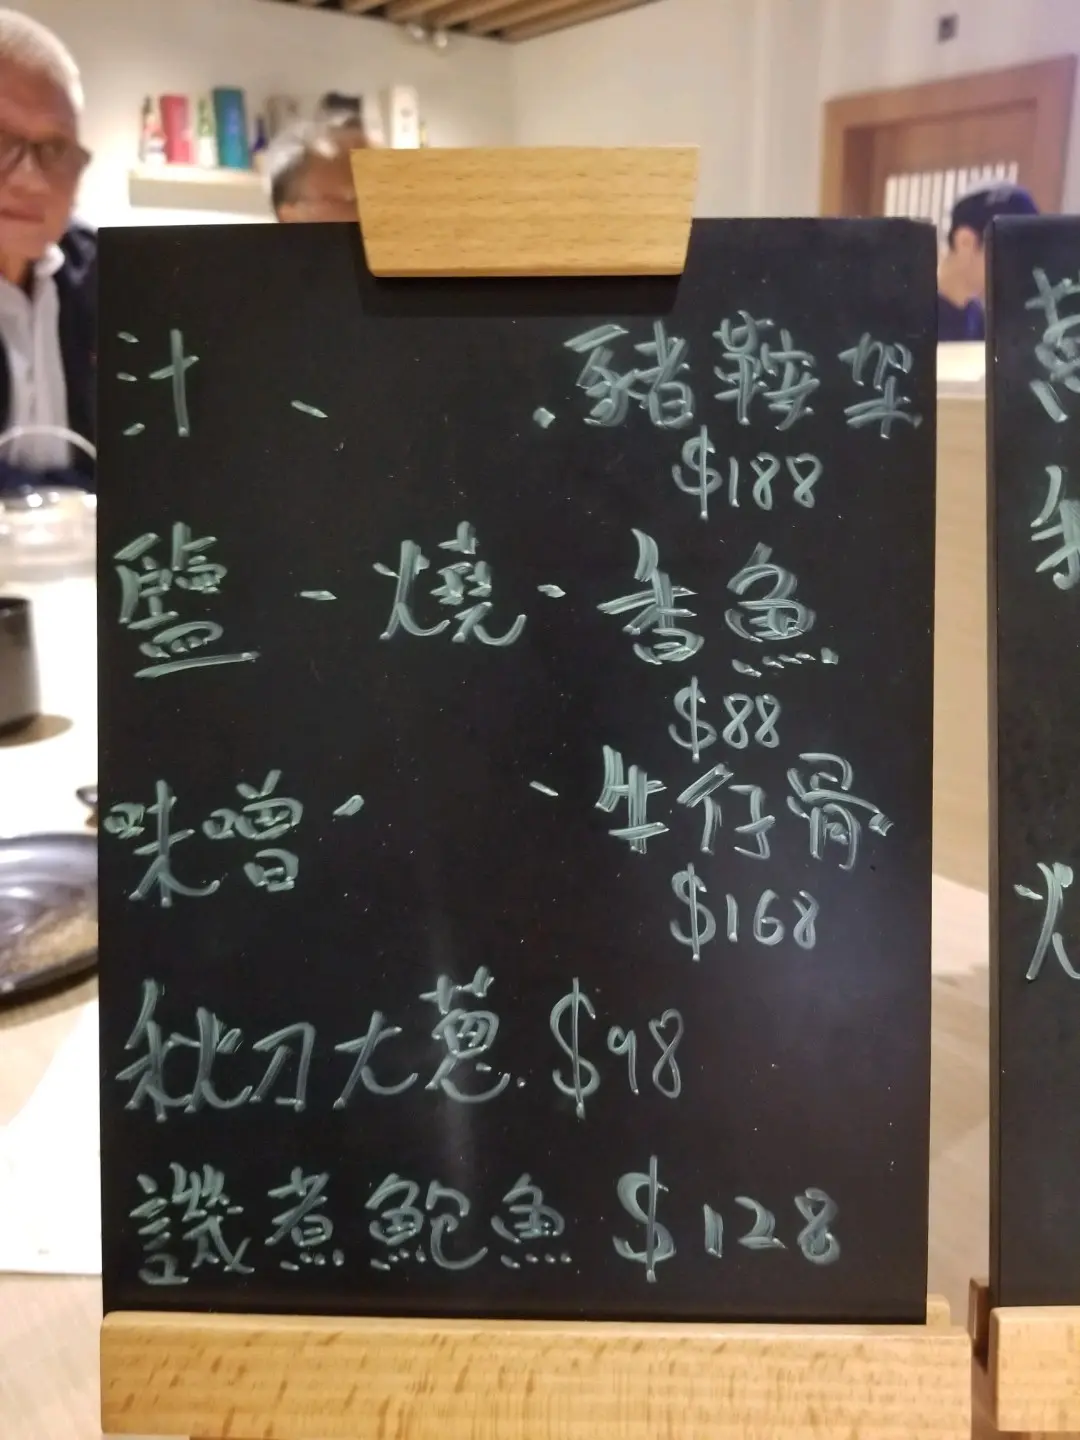 汁、 ．豬鞍架
$188
鹽-燒-香魚
$88
味噌- -牛仔骨
$168
秋刀大蔥. $98
譏煮鮑魚 $128